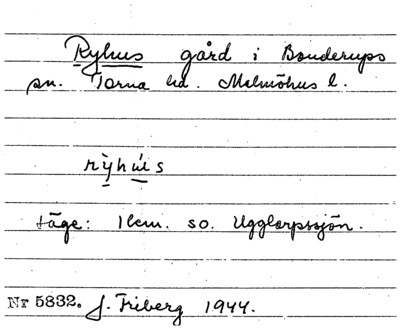 Ryhus gård i Bonderups
sn. Torna hd. Malmöhus l.
rỳhúis
Läge: 1 km. so. Ugglarpssjön.
Nr 5832. J. Friberg 1944.